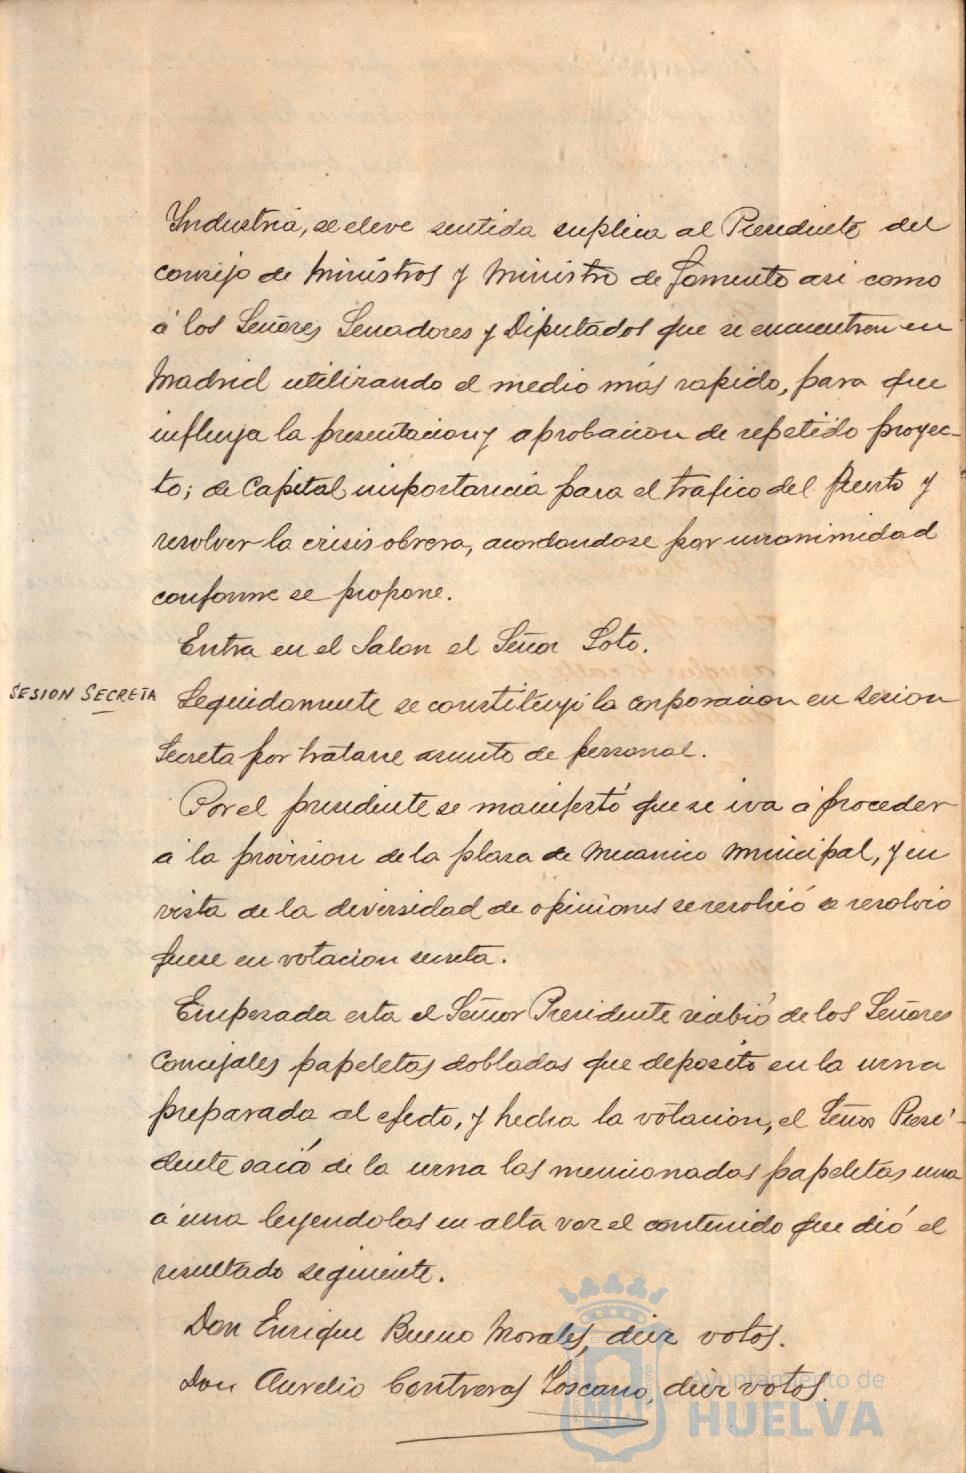 Industria, se eleve sentida suplica al Presidente del
consejo de Ministros y Ministro de Fomento asi como
á los Señores Senadores y Diputados que se encuentren en
Madrid utilizando el medio más rapido, para que
influya la presentacion y aprobacion de repetido proyec-
to; de Capital importancia para el trafico del Puerto y
resolver la crisis obrera, acordandose por unanimidad
conforme se propone.
Entra en el Salon el Señor Soto.
SESION SECRETA
Seguidamente se constituyó la corporacion en sesion
Secreta por tratarse asunto de personal.
Por el presidente se manifestó que se iva á proceder
á la provision de la plaza de Mecanico Municipal, y en
vista de la diversidad de opiniones se resolvió se resolvio
fuese en votacion secreta.
Empezada esta el Señor Presidente recibió de los Señores
Concejales papeletas dobladas que depositó en la urna
preparada al efecto, y hecha la votacion, el Señor Presi-
dente sacó de la urna las mencionadas papeletas una
á una leyendolas en alta voz el contenido que dió el
resultado siguiente.
Don Enrique Bueno Morales, diez votos.
Don Aurelio Contreras Toscano, diez votos.
Ayuntamiento de
HUELVA